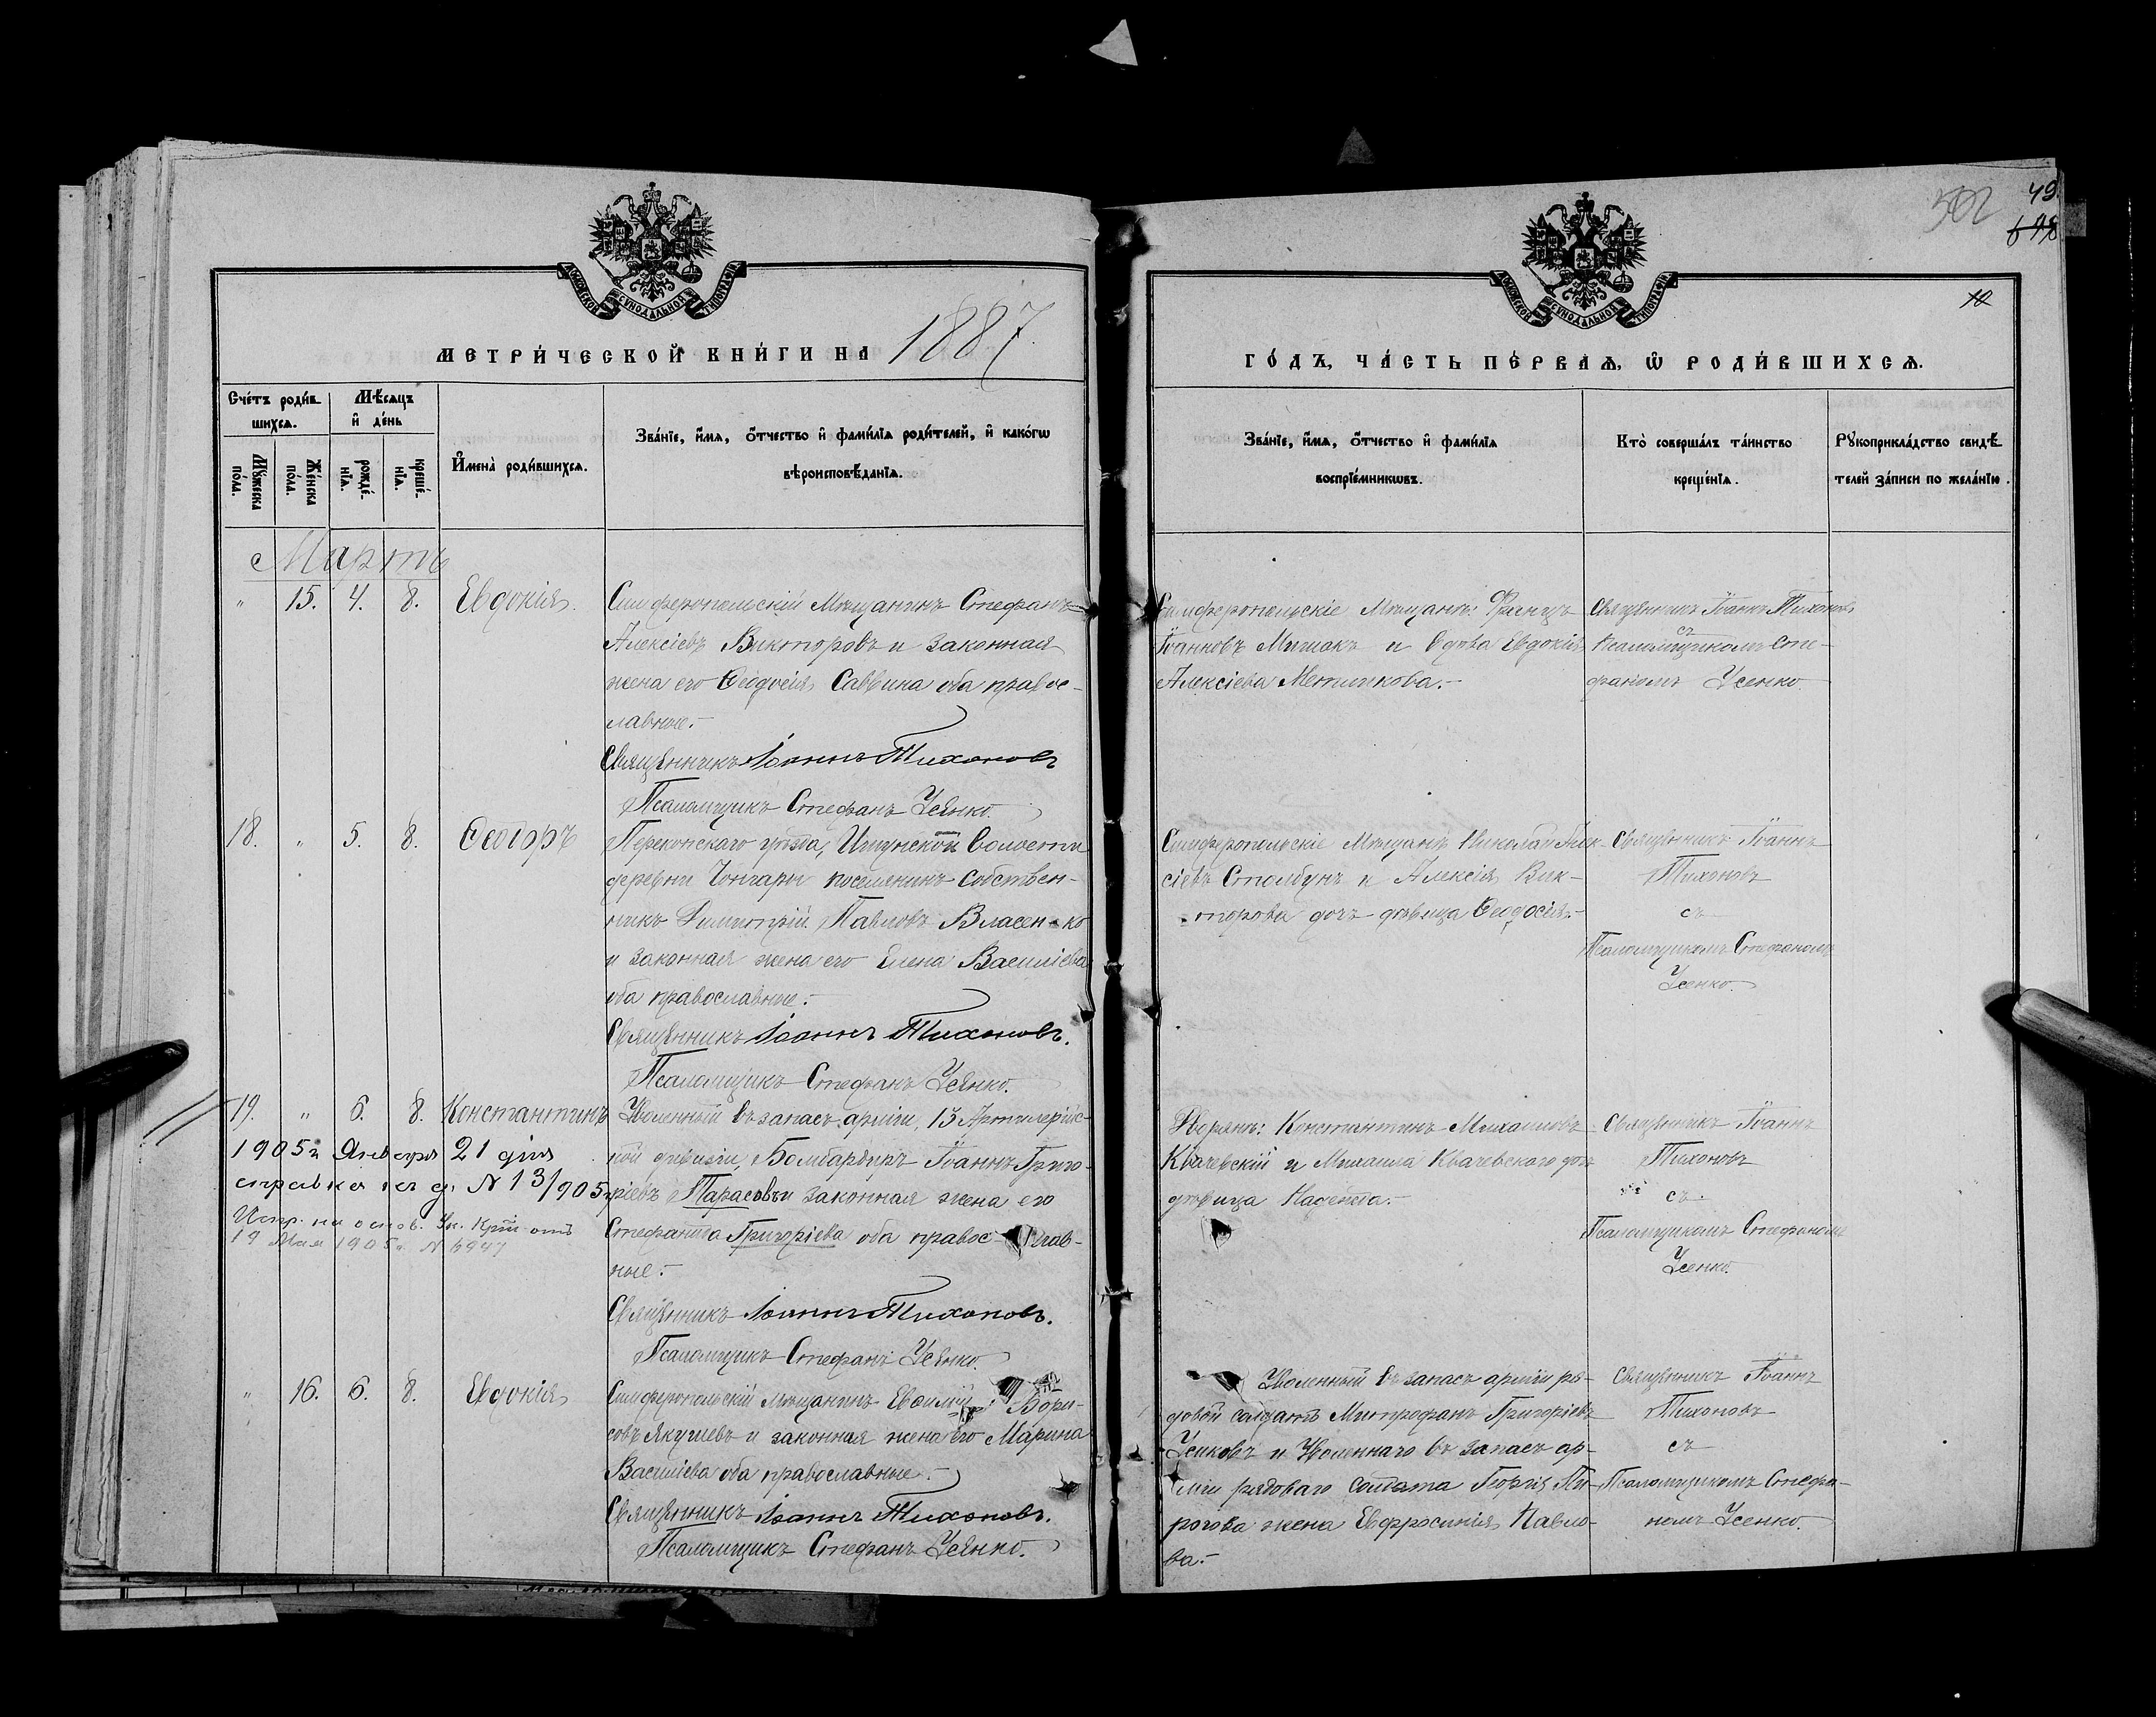 МОСКОВСКОЙ СѴНОДАЛЬНОЙ ТИПОГРАФІИ
МЕТРИ́ЧЕСКОЙ КНИ́ГИ НА 1887
Сче́тъ роди́в-
шихсѧ.
Мѣ́сѧцъ
и҆ де́нь
Мꙋ́жеска
по́ла.
Же́нска
по́ла.
рожде́-
нїѧ.
креще́-
нїѧ.
И҆мена̀ роди́вшихсѧ.
Зва́нїе, и҆́мѧ, о҆́тчество и҆ фами́лїѧ роди́телей, и҆ како́гѡ
вѣроисповѣ́данїѧ.
Мартъ
" 15. 4. 8. Евдокія.
Симферопольскій Мѣщанинъ Стефанъ
Алексіевъ Викторовъ и законная
жена его Ѳеодосія Саввина оба правос-
лавные.-
Священникъ Іоаннъ Тихоновъ
Псаломщикъ Стефанъ Усенко.
18. " 5. 8. Ѳеодоръ
Перекопскаго уѣзда, Ишунской Волости
деревни Чонгары поселянинъ Собствен-
никъ Димитрій Павловъ Власен-ко
и законная жена его Елена Василіева
оба православные.-
Священникъ Іоаннъ Тихоновъ.
Псаломщикъ Стефанъ Усенко.
19. " 6. 8. Константинъ
Уволенный въ запасъ арміи, 13 Артилерійс-
кой дивизіи, Бомбардиръ Іоаннъ Григо-
ріевъ Тарасовъ и законная жена его
Стефанида Григоріева оба правос-лав-
ные.-
1905 г. Января 21 дня
справка на д. N 13/905
19 Мая 1905 г. N 6947
Священникъ Іоаннъ Тихоновъ.
Псаломщикъ Стефанъ Усенко.
" 16. 6. 8. Евдокія
Симферопольскій Мѣщанинъ Бори-
совъ Якушевъ и законная жена его Марина
Василіева оба православные.-
Священникъ Іоаннъ Тихоновъ.
Псаломщикъ Стефанъ Усенко.
502 49
МОСКОВСКОЙ СѴНОДАЛЬНОЙ ТИПОГРАФІИ
ГО́ДЪ, ЧА́СТЬ ПЕ́РВАѦ, Ѡ҆ РОДИ́ВШИХСѦ.
Зва́нїе, и҆́мѧ, о҆́тчество и҆ фами́лїѧ
воспрїе́мникѡвъ.
Кто̀ соверша́лъ та́инство
креще́нїѧ.
Рꙋкоприкла́дство свидѣ́-
телей за́писи по жела́нїю.
Симферопольскіе Мѣщане: Францъ
Іоанновъ и вдова Евдокія
Алексіева Мешкова.-
Священникъ Іоаннъ Тихоновъ
съ
Псаломщикомъ Сте-
фаномъ Усенко.
Симферопольскіе Мѣщане Николай Алек-
сіевъ Столбунъ и Алексія Вик-
торова дочь дѣвица Ѳеодосія.-
Священникъ Іоаннъ
Тихоновъ
съ
Псаломщикомъ Стефаномъ
Усенко.
Дворяне: Константинъ Михаиловъ
Квачевскій и Михаила Квачевскаго дочь
дѣвица Надежда.-
Священникъ Іоаннъ
Тихоновъ
съ
Псаломщикомъ Стефаномъ
Усенко.
Уволенный въ запасъ арміи ря-
довой солдатъ Митрофанъ Григоріевъ
и Уволеннаго въ запасъ ар-
міи рядоваго солдата Георгія Пи-
рогова жена Евфросинія Павло-
ва.-
Священникъ Іоаннъ
Тихоновъ
съ
Псаломщикомъ Стефа-
номъ Усенко.